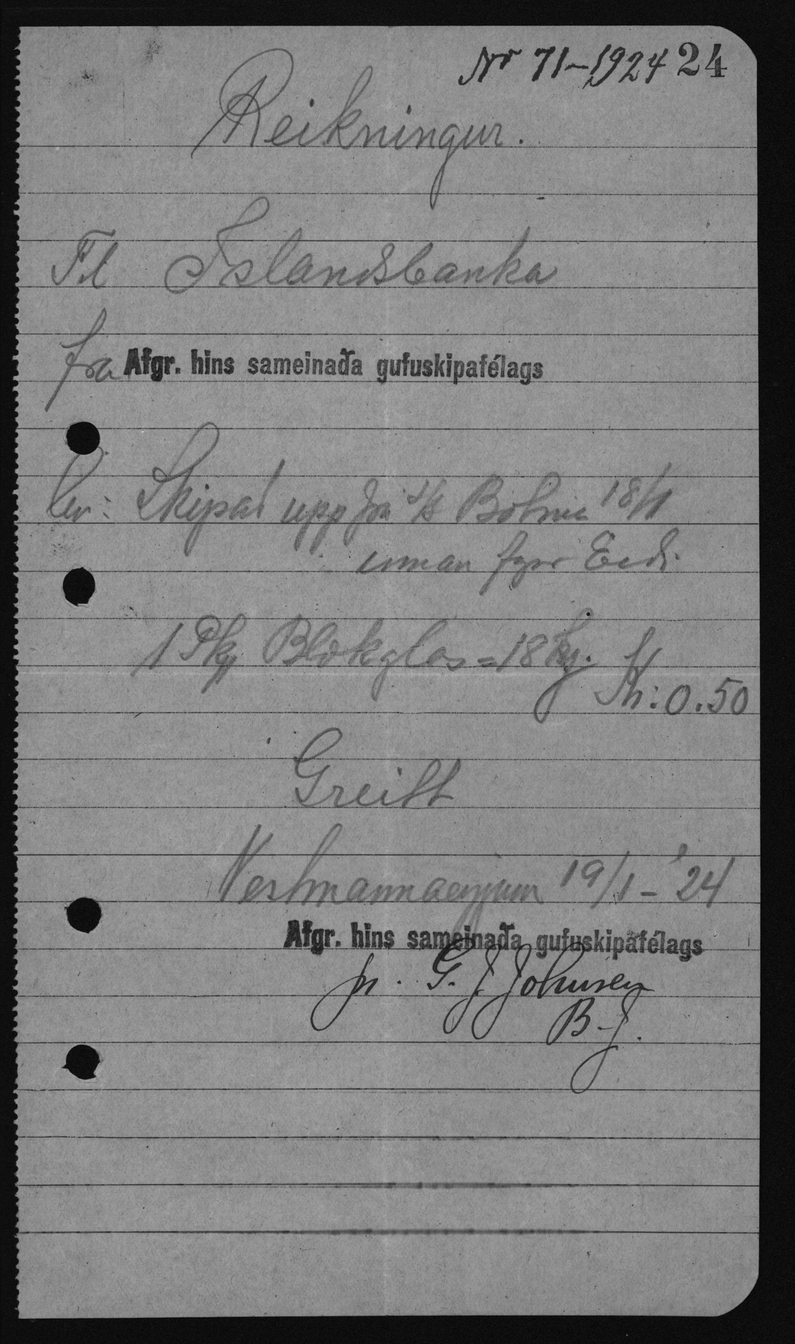 Nr 71-1924 24
Reikningur.
Til Íslandsbanka
frá Afgr. hins sameinaða gufuskipafélags
Skipað upp frá s/s Botnia 18/1
innan fyrir Eiði
1 Pkg Blokglas = 18 kg. Kr: 0.50
Greitt
Vestmannaeyjum 19/1-'24
Afgr. hins sameinaða gufuskipafélags
pr. G. J. Johnsen
B. J.